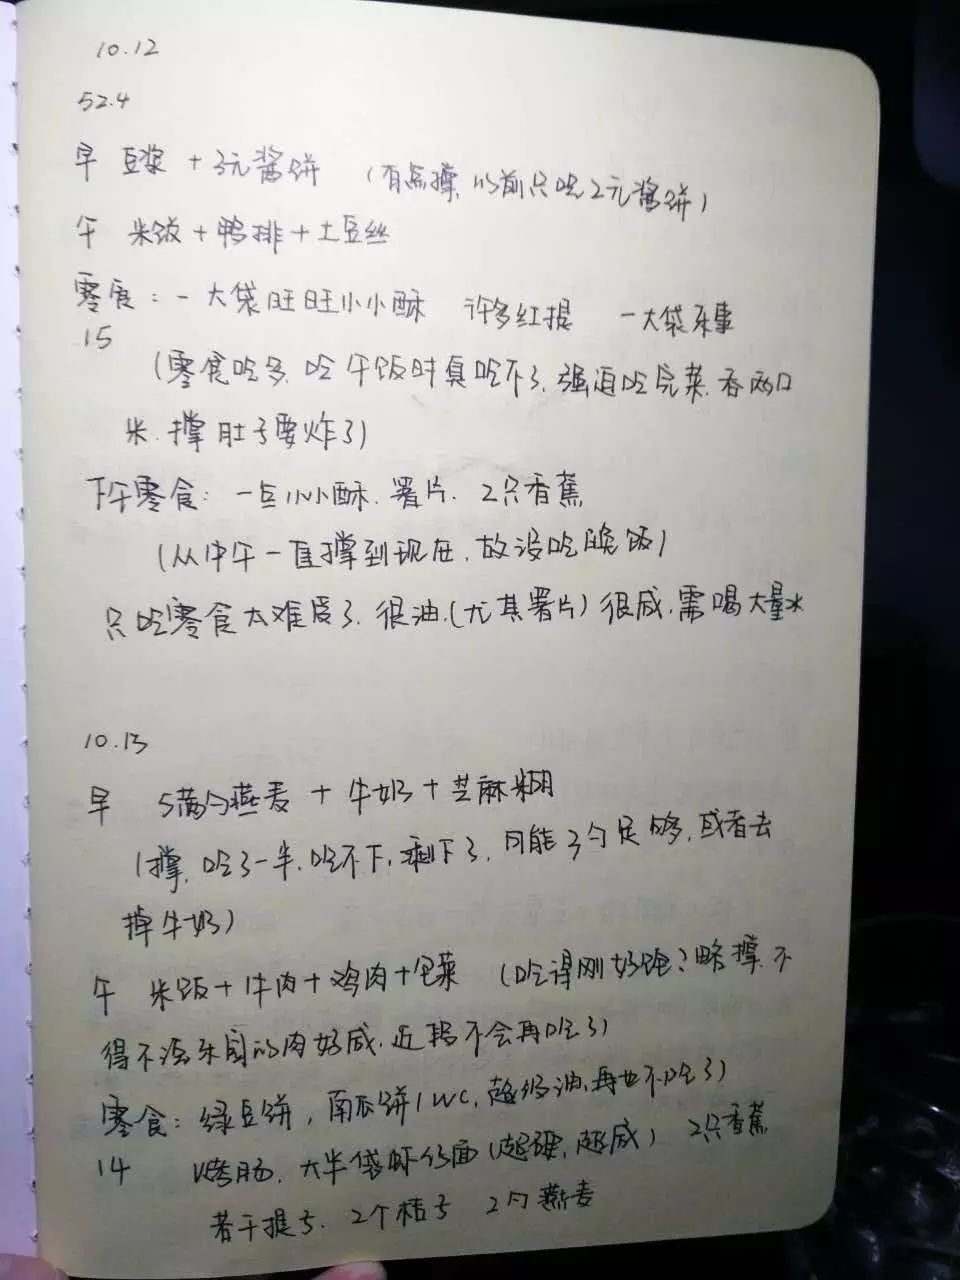 10.12
52.4
早 豆浆 + 3元酱饼 (有点撑,以前只吃2元酱饼)
午 米饭+鸭排+土豆丝
零食:一大袋旺旺小小酥 许多红提 一大袋乐事
15
(零食吃多,吃午饭时真吃不了,强迫吃完菜,吞两口
米.撑肚子要炸了)
下午零食:一点小小酥.薯片. 2只香蕉
(从中午一直撑到现在,故没吃晚饭)
只吃零食太难受了.很油.(尤其薯片)很咸.需喝大量水
10.13
早 5满勺燕麦 + 牛奶+芝麻糊
(撑,吃了一半.吃不下,剩下了,可能3勺足够,或者去
掉牛奶)
午 米饭+牛肉+鸡肉+包菜 (吃得刚好饱?略撑.不
得不说 的肉好咸,近期不会再吃了)
零食:绿豆饼,南瓜饼(WC,超级油,再也不吃了)
14 1烤肠.大半袋虾仔面(超硬,超咸) 2只香蕉
若干提子.2个桔子 2勺燕麦